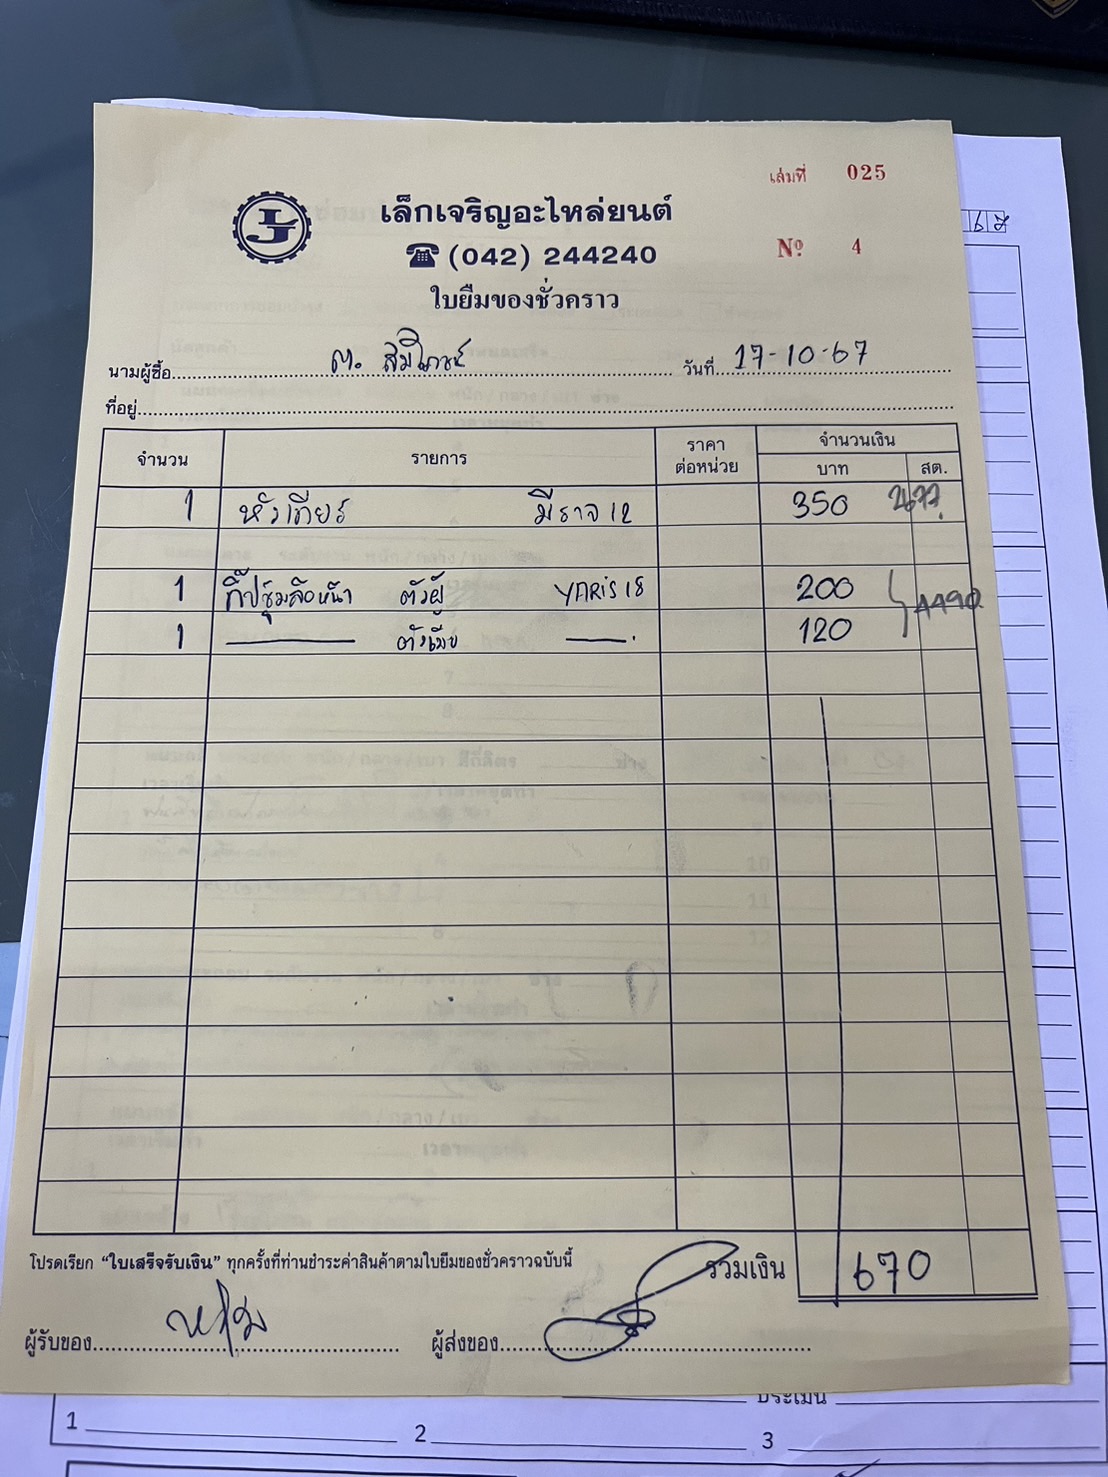 เล่มที่ 025
LJ
เล็กเจริญอะไหล่ยนต์
Nº 4
☎ (042) 244240
ใบยืมของชั่วคราว
นามผู้ซื้อ วันที่ 17-10-67
ที่อยู่
จำนวน รายการ ราคาต่อหน่วย จำนวนเงิน
บาท สต.
1 หัวเทียร์ มีราจ 12 350
1 กิ๊ปซุ้มล้อหน้า ตัวผู้ YARIS 18 200
1 ตัวเมีย 120
โปรดเรียก “ใบเสร็จรับเงิน” ทุกครั้งที่ท่านชำระค่าสินค้าตามใบยืมของชั่วคราวฉบับนี้ รวมเงิน 670
ผู้รับของ ผู้ส่งของ
ประเมิน
1 2 3